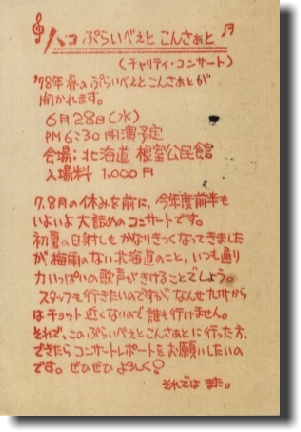 八コ ぷらいべえと こんさあと
(チャリティ・コンサート)
'78年 春の ぷらいべえと こんさあとが
開かれます。
6月28日(水)
PM 6:30 開演予定
会場: 北海道 根室公民館
入場料 1,000円
7.8月の休みを前に、今年度前半も
いよいよ 大詰めのコンサートです。
初夏の日射しも かなりきつくなってきました
が、梅雨のない北海道のこと、いつも通り
力いっぱいの歌声がきけることでしょう。
スタッフも行きたいのですが、なんせ九州から
はチョット 近くないので誰も行けません。
それで、このぷらいべえとこんさあとに行った方、
できたらコンサートレポートをお願いしたいの
です。ぜひぜひ よろしく!
それでは また。